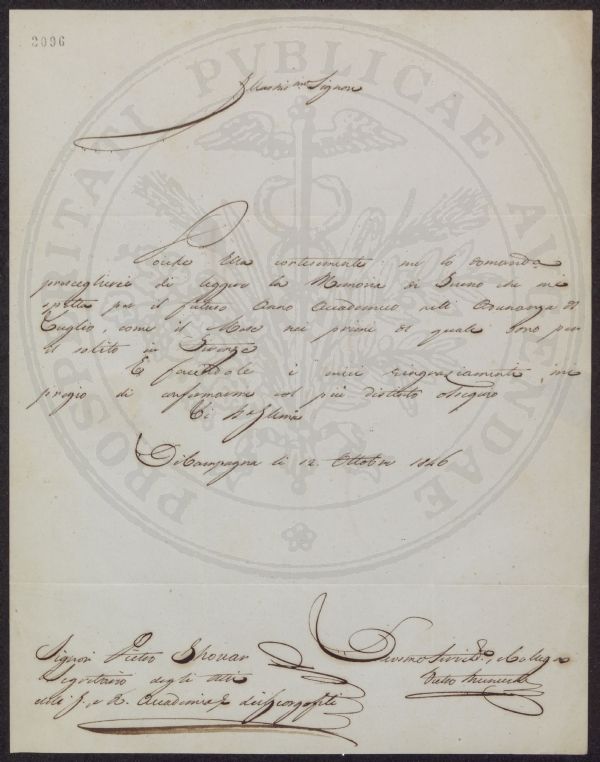 2096
PROSPERITATI PUBLICAE AUGENDAE
Signore
Poiche Ella cortesemente me lo domanda
prescegliere di leggere la Memoria di che mi
spetta per il futuro Anno Accademico nell' Adunanza di
Luglio, come il Mese nei primi di quale sono per
il solito in Firenze
E facendole i miei ringraziamenti, mi
pregio di confermarmi col più distinto ossequio
Di
Di Campagna li 12 Ottobre 1846
Signor Pietro
Segretario degli Atti
della I. e R. Accademia dei Georgofili
Devmo Servitre, e Collega
Pietro